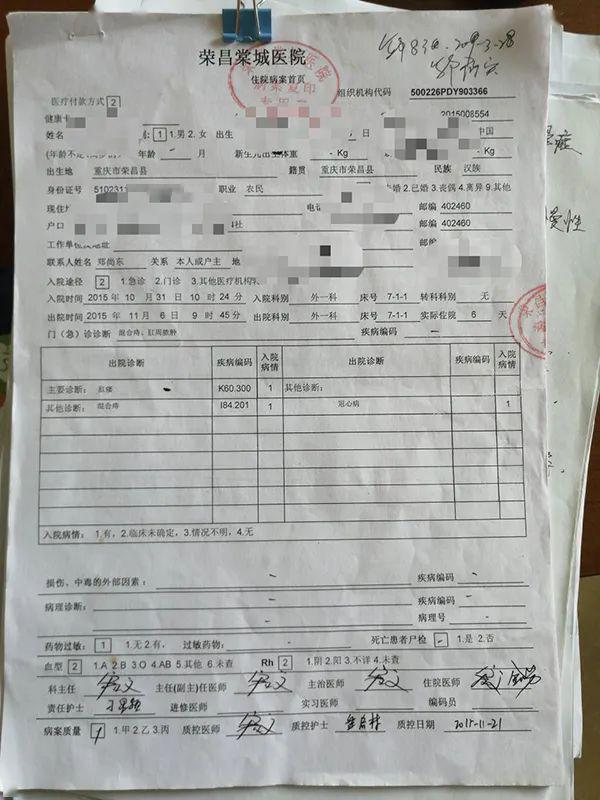 荣昌棠城医院
住院病案首页
病案复印
组织机构代码 500226PDY903366
医疗付款方式 2
健康卡 2015008554
姓名 1 1.男 2.女 出生 日 中国
年龄 - 月 新生儿出生体重 - Kg - Kg
出生地 重庆市荣昌县 籍贯 重庆市荣昌县 民族 汉族
身份证号 510231 职业 农民 2.已婚 3.丧偶 4.离异 9.其他
现住 电 邮编 402460
户口 社 邮编 402460
工作单位 邮编
联系人姓名 郑尚东 关系 本人或户主 地
入院途径 2 1.急诊 2.门诊 3.其他医疗机构
入院时间 2015 年 10 月 31 日 10 时 24 分 入院科别 外一科 床号 7-1-1 转科科别 无
出院时间 2015 年 11 月 6 日 9 时 45 分 出院科别 外一科 床号 7-1-1 实际住院 6 天
门(急)诊诊断 混合痔、肛周脓肿 疾病编码 -
出院诊断 疾病编码 入院病情 出院诊断 疾病编码 入院病情
主要诊断: 肛瘘 K60.300 1 其他诊断:
其他诊断: 混合痔 I84.201 1 冠心病 1
入院病情: 1.有, 2.临床未确定, 3.情况不明, 4.无
损伤、中毒的外部因素: - 疾病编码 -
病理诊断: - 疾病编码 -
- 病理号 -
药物过敏: 1 1.无 2.有, 过敏药物: - 死亡患者尸检 - 1.是 2.否
血型 2 1.A 2.B 3.O 4.AB 5.其他 6.未查 Rh 2 1.阴 2.阳 3.不详 4.未查
科主任 主任(副主)任医师 主治医师 住院医师
责任护士 进修医师 实习医师 编码员
病案质量 1 1.甲 2.乙 3.丙 质控医师 质控护士 质控日期 2015-11-21